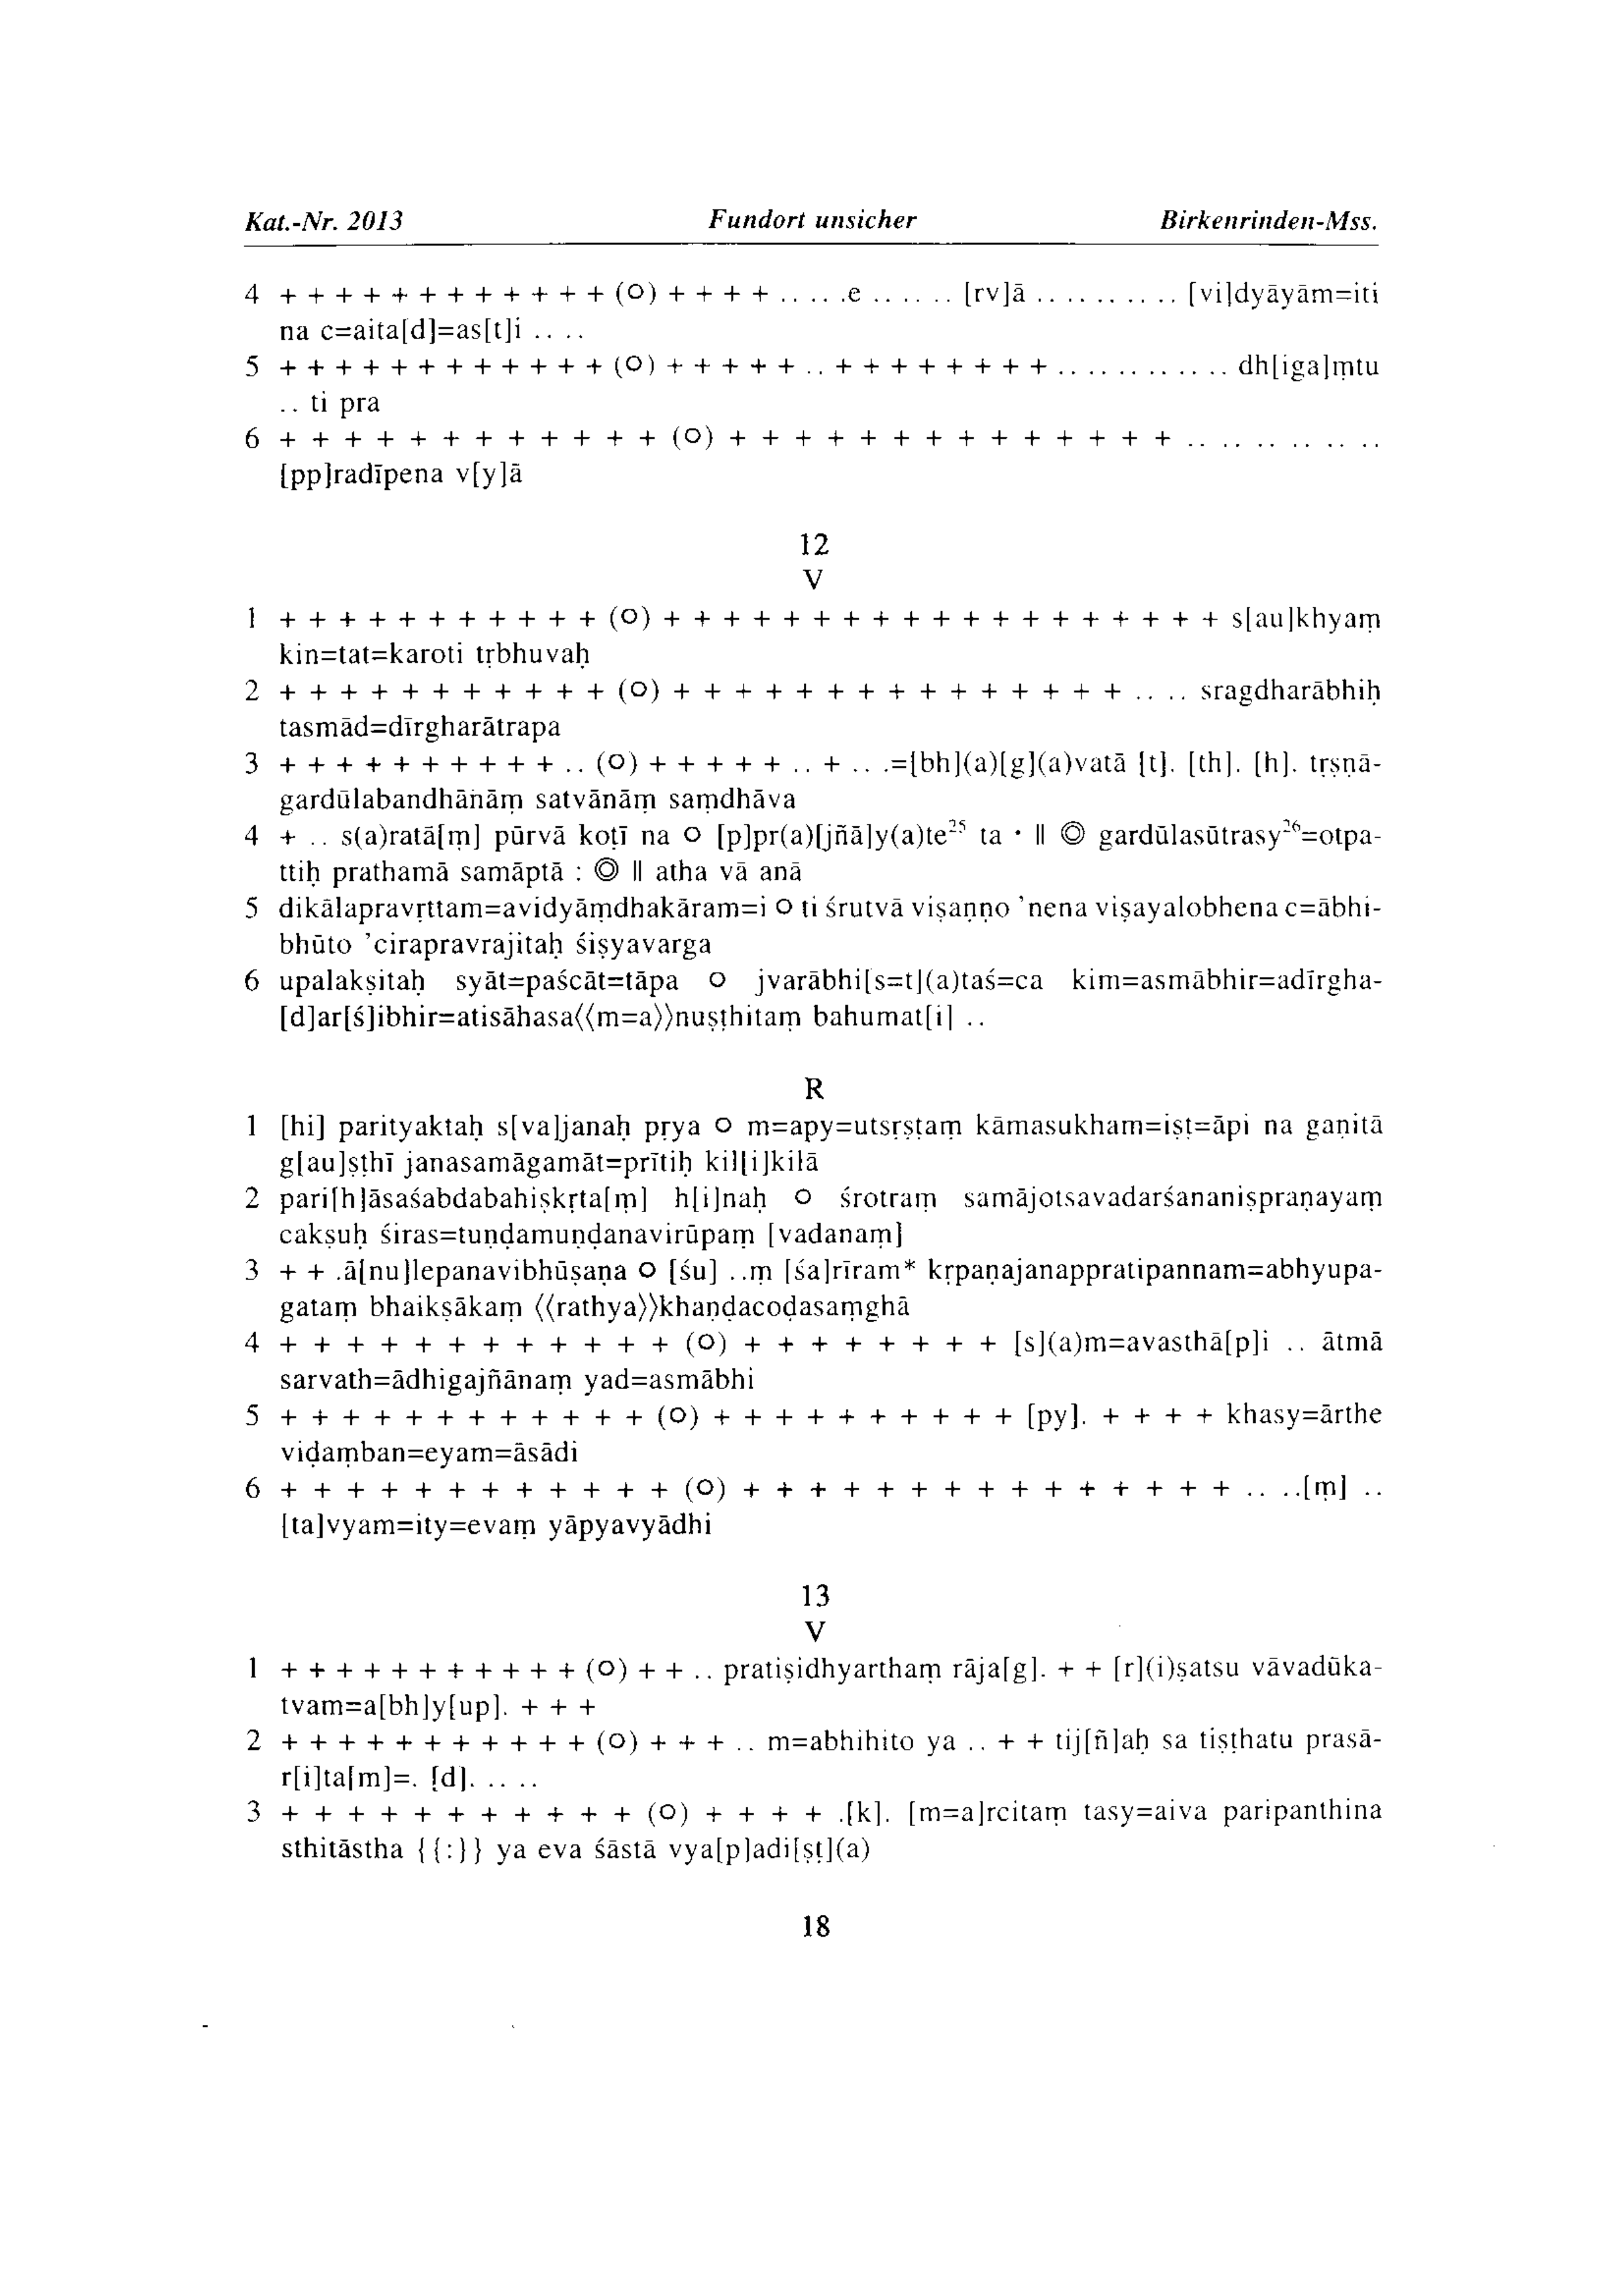 Kat.-Nr. 2013 Fundort unsicher Birkenrinden-Mss.
4 + + + + + + + + + + + + (○) + + + + .. .. .e .. .. .. [rv]ā .. .. .. .. .. [vi]dyāyām=iti
na c=aita[d]=as[t]i .. ..
5 + + + + + + + + + + + + (○) + + + + + .. + + + + + + + + .. .. .. .. .. .. .. dh[iga]ṃtu
.. ti pra
6 + + + + + + + + + + + + (○) + + + + + + + + + + + + + + .. .. .. .. .. ..
[pp]radīpena v[y]ā
12
V
1 + + + + + + + + + + + (○) + + + + + + + + + + + + + + + + + + + s[au]khyaṃ
kin=tat=karoti tṛbhuvaḥ
2 + + + + + + + + + + + (○) + + + + + + + + + + + + + + + .. .. sragdharābhiḥ
tasmād=dīrgharātrapa
3 + + + + + + + + + + .. (○) + + + + + .. + .. .=[bh](a)[g](a)vatā [t]. [th]. [h]. tṛṣṇā-
gardūlabandhānāṃ satvānāṃ saṃdhāva
4 + .. s(a)ratā[ṃ] pūrvā koṭī na ○ [p]pr(a)[jñā]y(a)te²⁵ ta · || ◎ gardūlasūtrasy²⁶=otpa-
ttiḥ prathamā samāptā : ◎ || atha vā anā
5 dikālapravṛttam=avidyāṃdhakāram=i ○ ti śrutvā viṣaṇṇo ’nena viṣayalobhena c=ābhi-
bhūto ’cirapravrajitaḥ śiṣyavarga
6 upalakṣitaḥ syāt=paścāt=tāpa ○ jvarābhi[s=t](a)taś=ca kim=asmābhir=adīrgha-
[d]ar[ś]ibhir=atisāhasa⟨⟨m=a⟩⟩nuṣṭhitaṃ bahumat[i] ..
R
1 [hi] parityaktaḥ s[va]janaḥ pṛya ○ m=apy=utsṛṣṭaṃ kāmasukham=iṣṭ=āpi na gaṇitā
g[au]ṣṭhī janasamāgamāt=prītiḥ kil[i]kilā
2 pari[h]āsaśabdabahiṣkṛta[ṃ] h[i]naḥ ○ śrotraṃ samājotsavadarśananiṣpraṇayaṃ
cakṣuḥ śiras=tuṇḍamuṇḍanavirūpaṃ [vadanaṃ]
3 + + .ā[nu]lepanavibhūṣaṇa ○ [śu] ..ṃ [śa]rīram* kṛpaṇajanappratipannam=abhyupa-
gataṃ bhaikṣākaṃ ⟨⟨rathya⟩⟩khaṇḍacoḍasaṃghā
4 + + + + + + + + + + + + (○) + + + + + + + + [s](a)m=avasthā[p]i .. ātmā
sarvath=ādhigajñānaṃ yad=asmābhi
5 + + + + + + + + + + + + (○) + + + + + + + + + + [py]. + + + + khasy=ārthe
viḍaṃban=eyam=āsādi
6 + + + + + + + + + + + + (○) + + + + + + + + + + + + + + + .. ..[ṃ] ..
[ta]vyam=ity=evaṃ yāpyavyādhi
13
V
1 + + + + + + + + + + + (○) + + .. pratiṣidhyarthaṃ rāja[g]. + + [r](i)ṣatsu vāvadūka-
tvam=a[bh]y[up]. + + +
2 + + + + + + + + + + + (○) + + + .. m=abhihito ya .. + + tij[ñ]aḥ sa tiṣṭhatu prasā-
r[i]ta[m]=. [d]. .. ..
3 + + + + + + + + + + + (○) + + + + .[k]. [m=a]rcitaṃ tasy=aiva paripanthina
sthitāstha {{:}} ya eva śāstā vya[p]adi[ṣṭ](a)
18